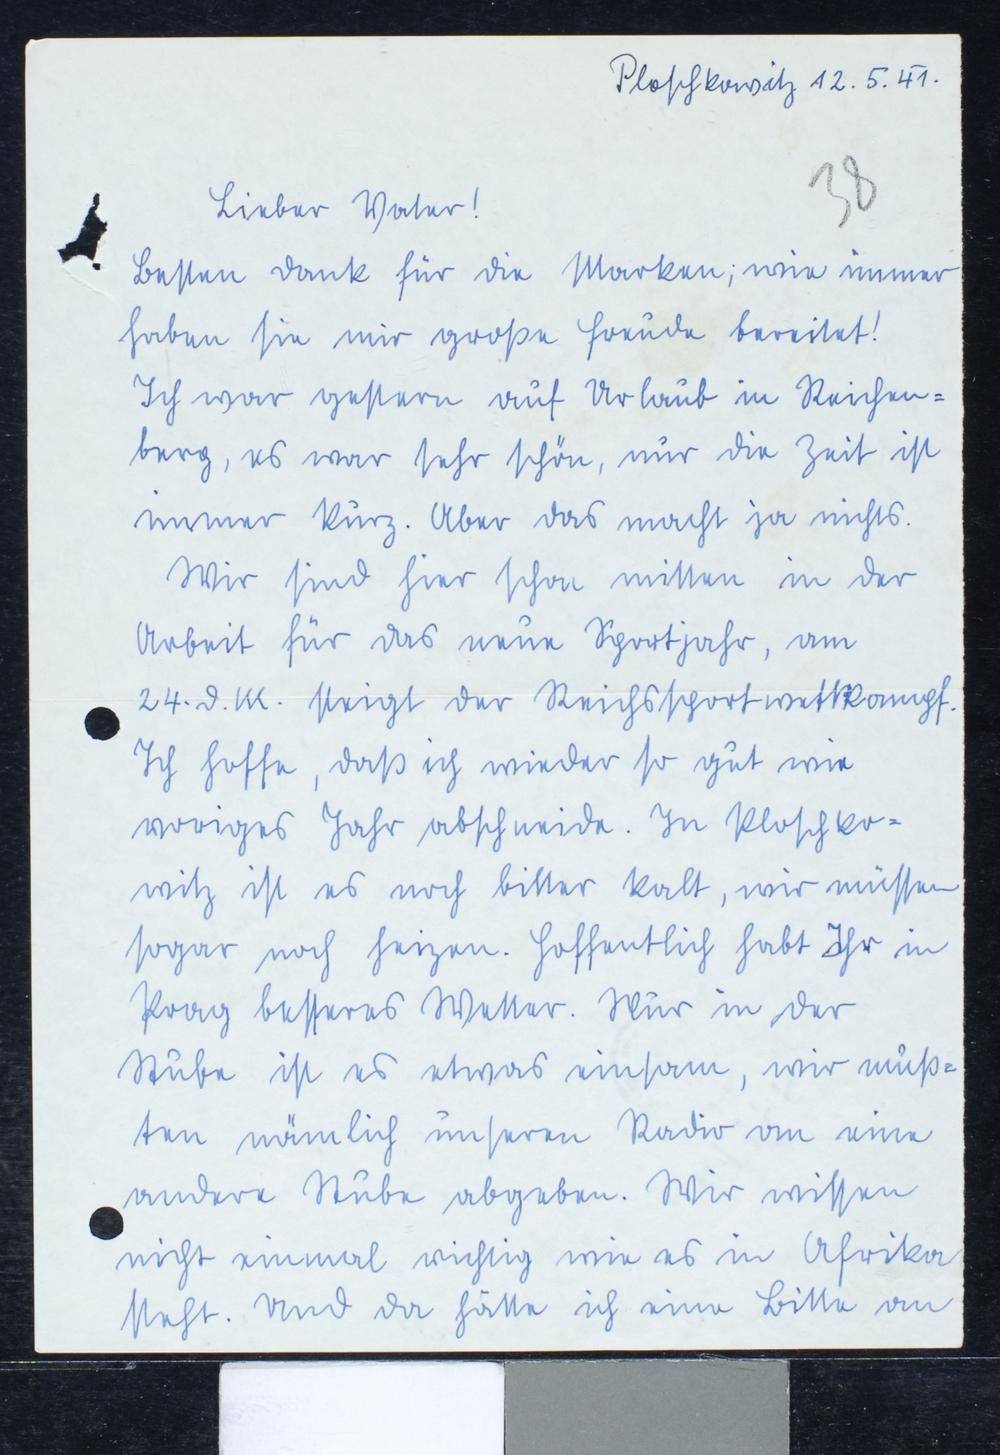 Ploschkowitz 12.5.41.
38
Lieber Vater!
Besten Dank für die Marken; wie immer
haben sie mir große Freude bereitet!
Ich war gestern auf Urlaub in Reichen=
berg, es war sehr schön, nur die Zeit ist
immer kurz. Aber das macht ja nichts.
Wir sind hier schon mitten in der
Arbeit für das neue Sportjahr, am
24. d. M. steigt der Reichssportwettkampf.
Ich hoffe, daß ich wieder so gut wie
voriges Jahr abschneide. In Ploschko=
witz ist es noch bitter kalt, wir müssen
sogar noch heizen. Hoffentlich habt Ihr in
Prag besseres Wetter. Nur in der
Stube ist es etwas einsam, wir muß=
ten nämlich unseren Radio an eine
andere Stube abgeben. Wir wissen
nicht einmal richtig wie es in Afrika
steht. Und da hätte ich eine Bitte an